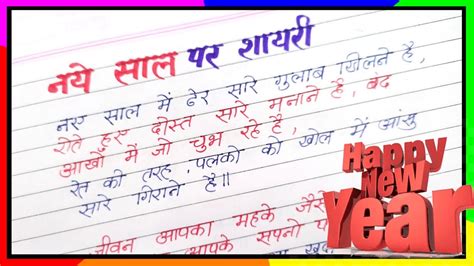 नये साल पर शायरी
नए साल में ढेर सारे गुलाब खिलने है,
रोते हुए दोस्त सारे मनाने है, बंद
आखों में जो चुभ रहे है,
रेत की तरह, पलकों को खोल में आंसु
सारे गिराने है॥
जीवन आपका महके जैसे
आपके सपनो
Happy
New
Year